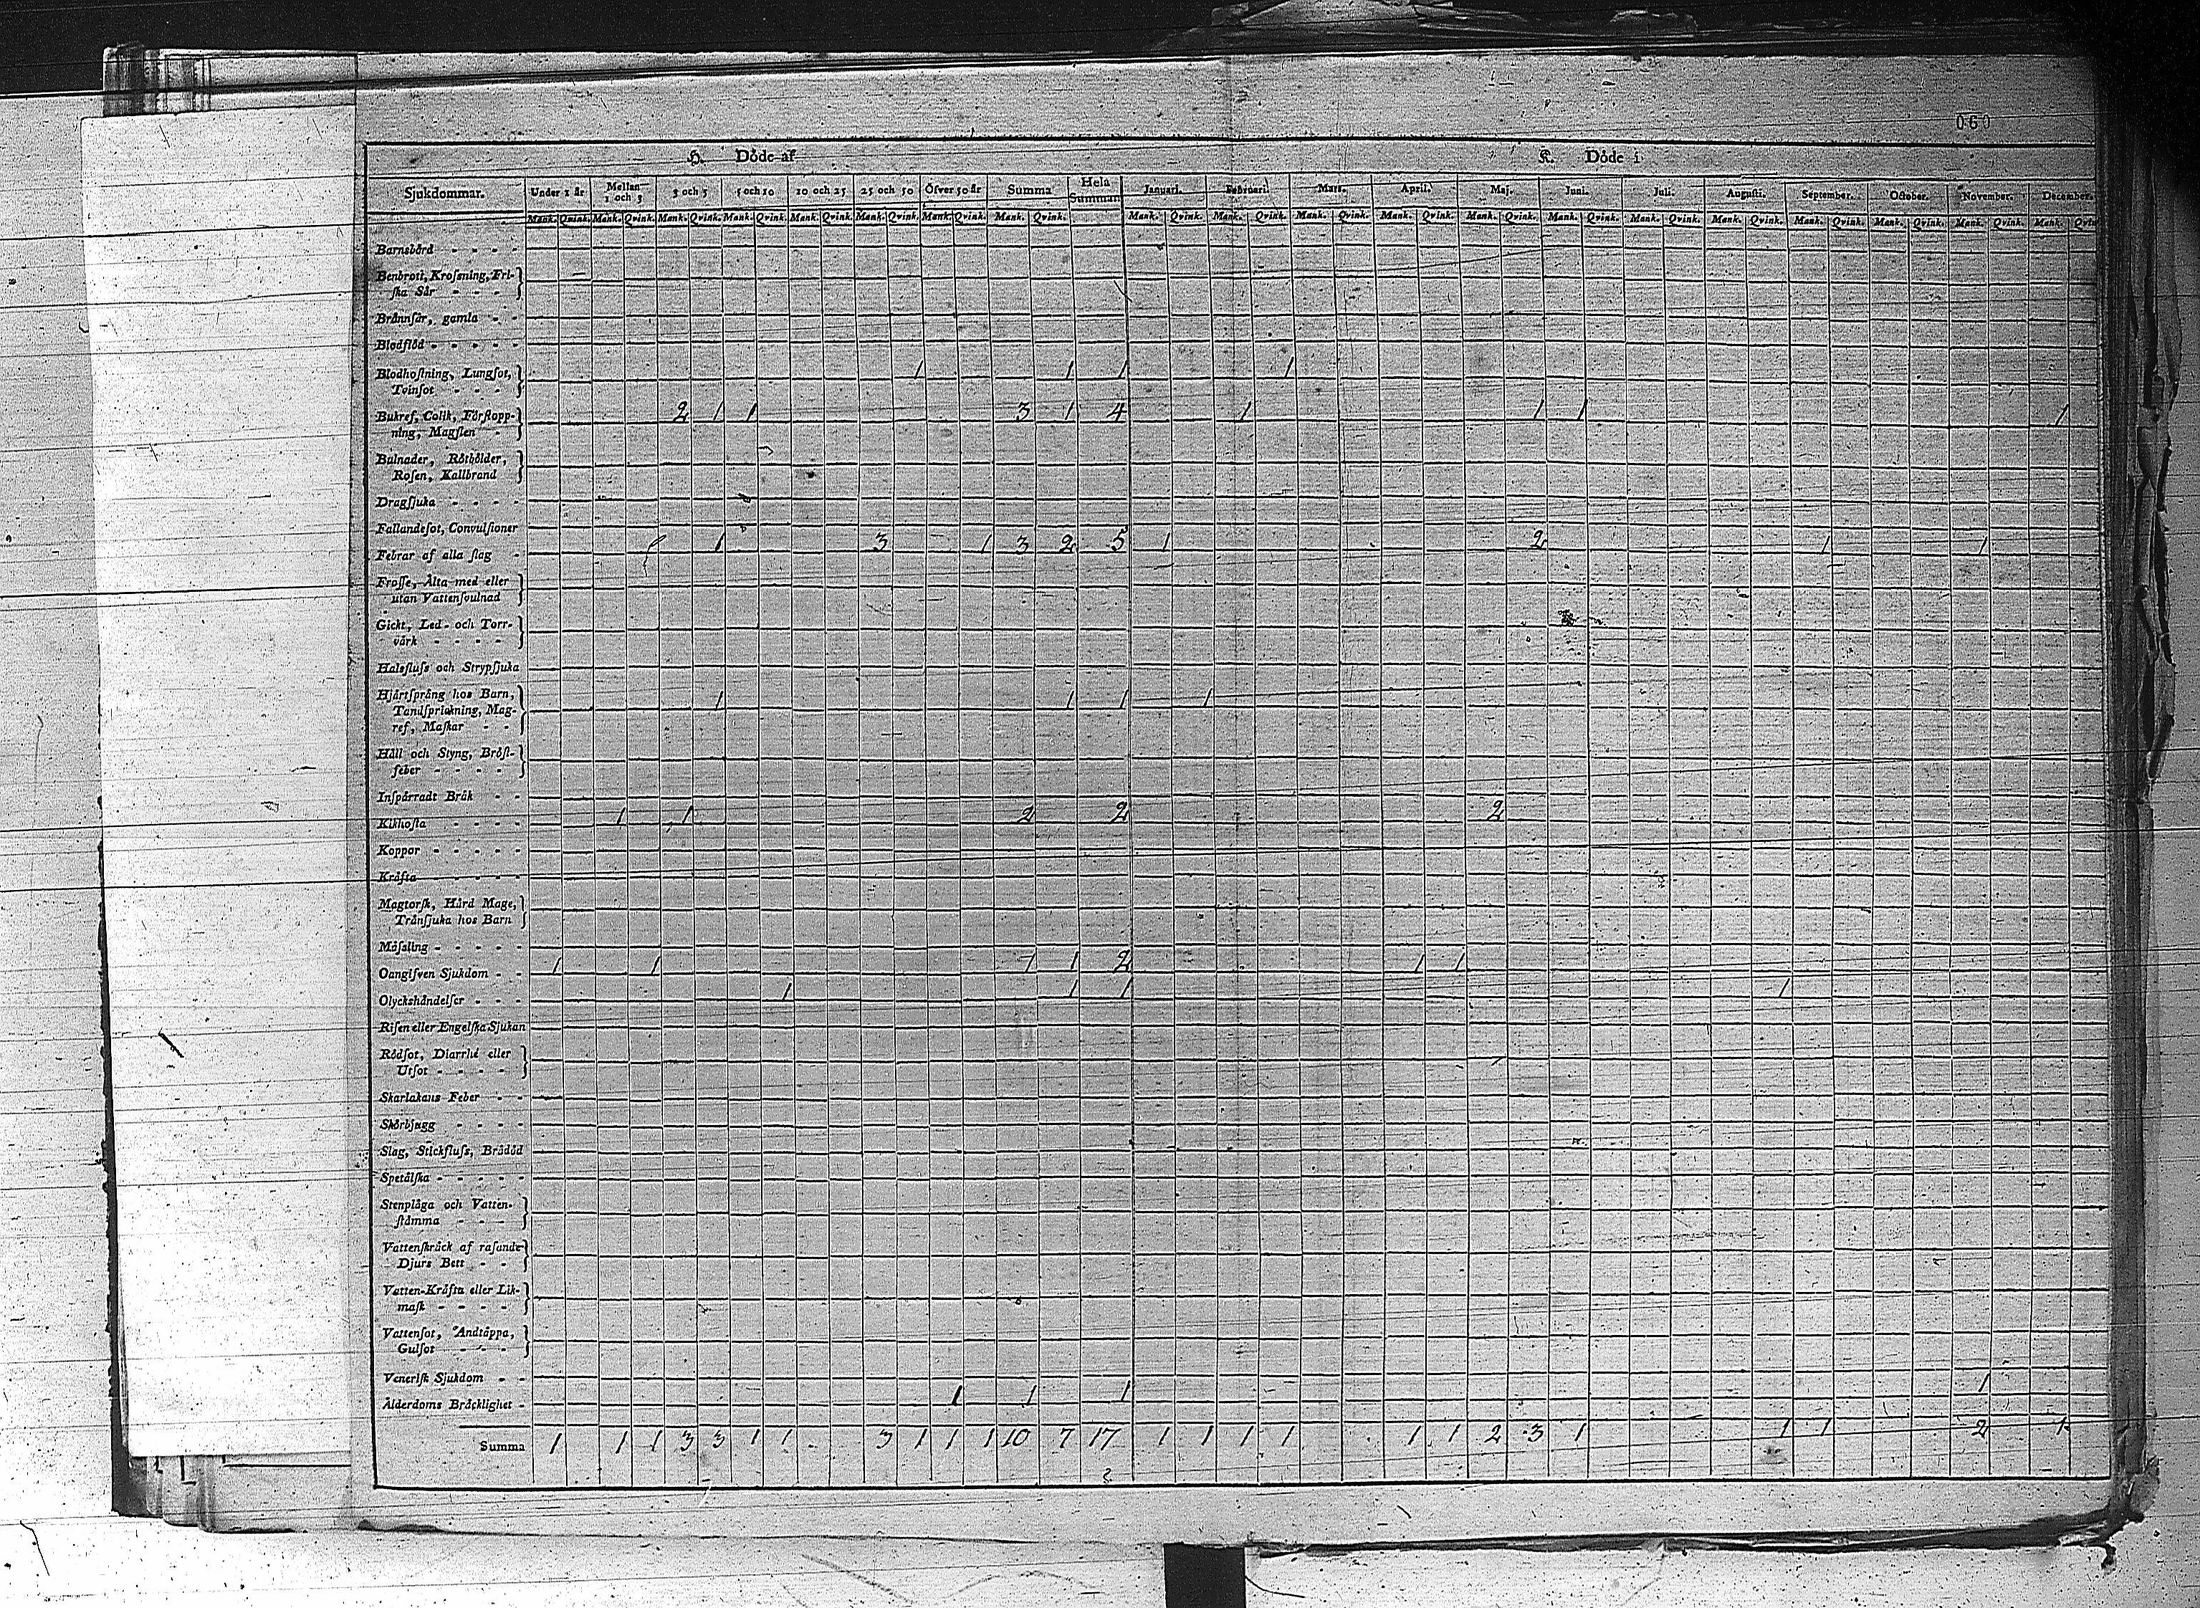 060
H. Döde af
K. Döde i
Sjukdommar. Under 1 år Mellan 1 och 3 3 och 5 5 och 10 10 och 25 25 och 50 Öfver 50 år Summa Hela Summan Januari. Februari. Mars. April. Maj. Juni. Juli. Augusti. September. October. November. December.
Mank. Qvink. Mank. Qvink. Mank. Qvink. Mank. Qvink. Mank. Qvink. Mank. Qvink. Mank. Qvink. Mank. Qvink. Mank. Qvink. Mank. Qvink. Mank. Qvink. Mank. Qvink. Mank. Qvink. Mank. Qvink. Mank. Qvink. Mank. Qvink. Mank. Qvink. Mank. Qvink. Mank. Qvink. Mank. Qvin
Barnsbörd - - - -
Benbrott, Kroſsning, Fri-
ſka Sår - - -
Brännſår, gamla - -
Blodflöd - - - - -
Blodhoſtning, Lungſot, 1 1 1 1
Tvinſot - - -
Bukref, Colik, Förſtopp- 2 1 1 3 1 4 1 1 1 1
ning, Magſten -
Bulnader, Rötbölder,
Roſen, Kallbrand
Dragſjuka - - - -
Fallandeſot, Convulſioner
Febrar af alla ſlag - 1 3 1 3 2 5 1 2 1 1
Froſſe, Älta med eller
utan Vattenſvulnad
Gickt, Led- och Torr-
värk - - - -
Halsfluſs och Strypſjuka
Hjärtſprång hos Barn, 1 1 1 1
Tandſprickning, Mag-
ref, Maſkar - -
Håll och Styng, Bröſt-
feber - - - -
Inſpärradt Bråk - -
Kikhoſta - - - - 1 1 2 2 2
Koppor - - - - -
Kräfta - - - - -
Magtorſk, Hård Mage,
Tränſjuka hos Barn
Mäſsling - - - - -
Oangifven Sjukdom - - 1 1 1 1 2 1 1
Olyckshändelſer - - - 1 1 1 1
Riſen eller Engelſka Sjukan
Rödſot, Diarrhé eller
Utſot - - - -
Skarlakans Feber - -
Skörbjugg - - - -
Slag, Stickfluſs, Brådöd
Spetälſka - - - - -
Stenplåga och Vatten-
ſtämma - - -
Vattenſkräck af raſande
Djurs Bett - -
Vatten-Kräfta eller Lik-
maſk - - - -
Vattenſot, Andtäppa,
Gulſot - - -
Veneriſk Sjukdom - -
Ålderdoms Bräcklighet - 1 1 1 1
Summa 1 1 1 3 3 1 1 3 1 1 1 10 7 17 1 1 1 1 1 1 2 3 1 1 1 2 1